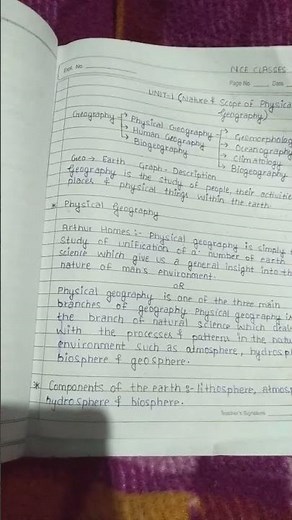 Expt. No.
NCE CLASSES
Page No. Date
UNIT-1 (Nature & Scope of Physical
Geography)
Geography → Physical Geography → Geomorpholog
→ Human Geography → Oceanography
→ Biogeography → Climatology
→ Biogeography
Geo → Earth Graph - Description
Geography is the study of people, their activities
places & physical things within the earth.
* Physical Geography
Arthur Homes :- Physical geography is simply
Study of unification of a number of earth
science which give us a general insight into the
nature of man's environment.
OR
Physical geography is one of the three main
branches of geography Physical geography is
the branch of natural science which deals
with the processes & pattern in the natu
environment such as atmosphere, hydrosp
biosphere & geosphere.
* Components of the earth :- lithosphere, atmos
hydrosphere & biosphere.
Teacher's Signature